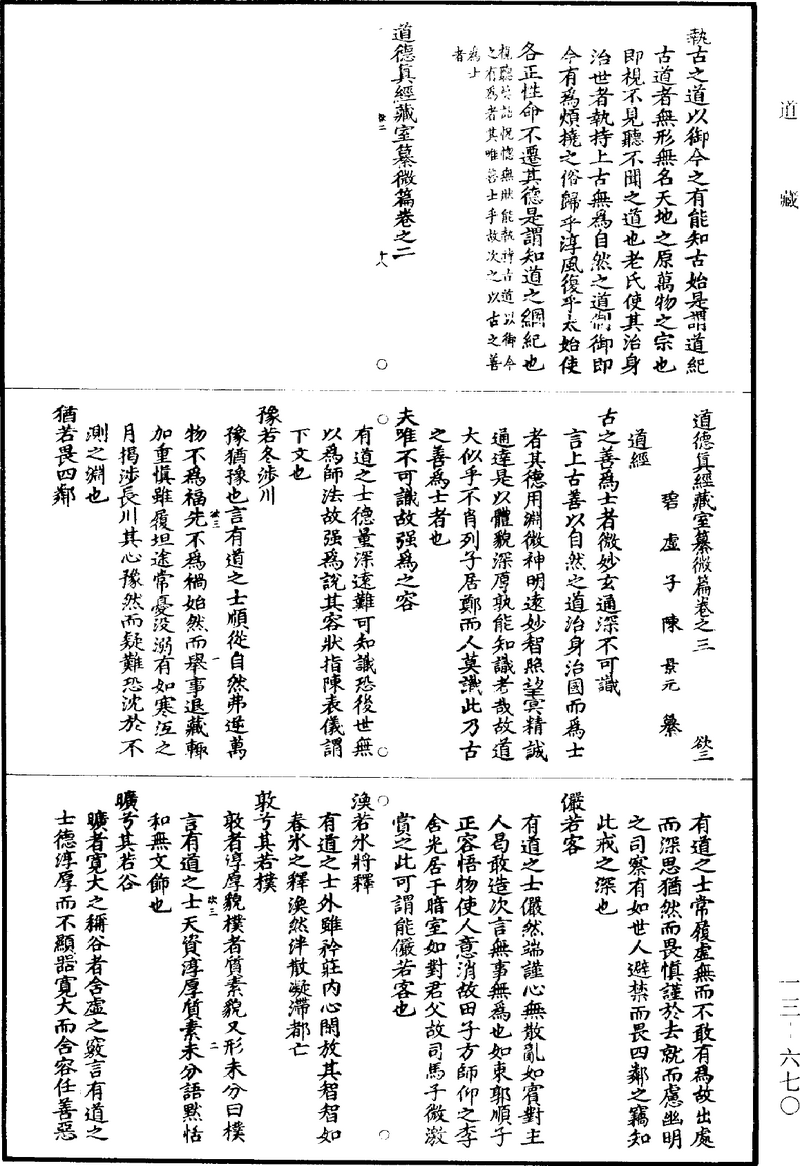 道藏
執古之道以御今之有能知古始是謂道紀
古道者無形無名天地之原萬物之宗也
即視不見聽不聞之道也老氏使其治身
治世者執持上古無為自然之道制御即
今有為煩撓之俗歸乎淳風復乎太始使
各正性命不遷其德是謂知道之綱紀也
視聽恍惚無狀能執持古道以御今
之有為者其唯善士乎故次之以古之善
為士
者
道德真經藏室纂微篇卷之二
欲二
十八
道德真經藏室纂微篇卷之三
欲三
碧虛子陳景元纂
道經
古之善為士者微妙玄通深不可識
言上古善以自然之道治身治國而為士
者其德用淵微神明遠妙智照望冥精誠
通達是以體貌深厚孰能知識者哉故道
大似乎不肖列子居鄭而人莫識此乃古
之善為士者也
夫唯不可識故強為之容
有道之士德量深遠難可知識恐後世無
以為師法故強為說其容狀指陳表儀謂
下文也
豫若冬涉川
豫猶豫也言有道之士順從自然弗逆萬
欲三
一
物不為福先不為禍始然而舉事退藏輒
加重慎雖履坦途常憂沒溺有如寒沍之
月揭涉長川其心豫然而疑難恐沈於不
測之淵也
猶若畏四鄰
有道之士常履虛無而不敢有為故出處
而深思猶然而畏慎謹於去就而慮幽明
之司察有如世人避禁而畏四鄰之竊知
此戒之深也
儼若客
有道之士儼然端謹心無散亂如賓對主
人曷敢造次言無事無為也如東郭順子
正容悟物使人意消故田子方師仰之李
含光居于暗室如對君父故司馬子微激
賞之此可謂能儼若客也
渙若冰將釋
有道之士外雖矜莊內心閑放其智智如
春冰之釋渙然泮散凝滯都亡
敦兮其若樸
敦者淳厚貌樸者質素貌又形未分曰樸
言有道之士天資淳厚質素未分語默恬
欲三
二
和無文飾也
曠兮其若谷
曠者寬大之稱谷者含虛之竅言有道之
士德淳厚而不顯器寬大而含容任善惡
一三-六七〇